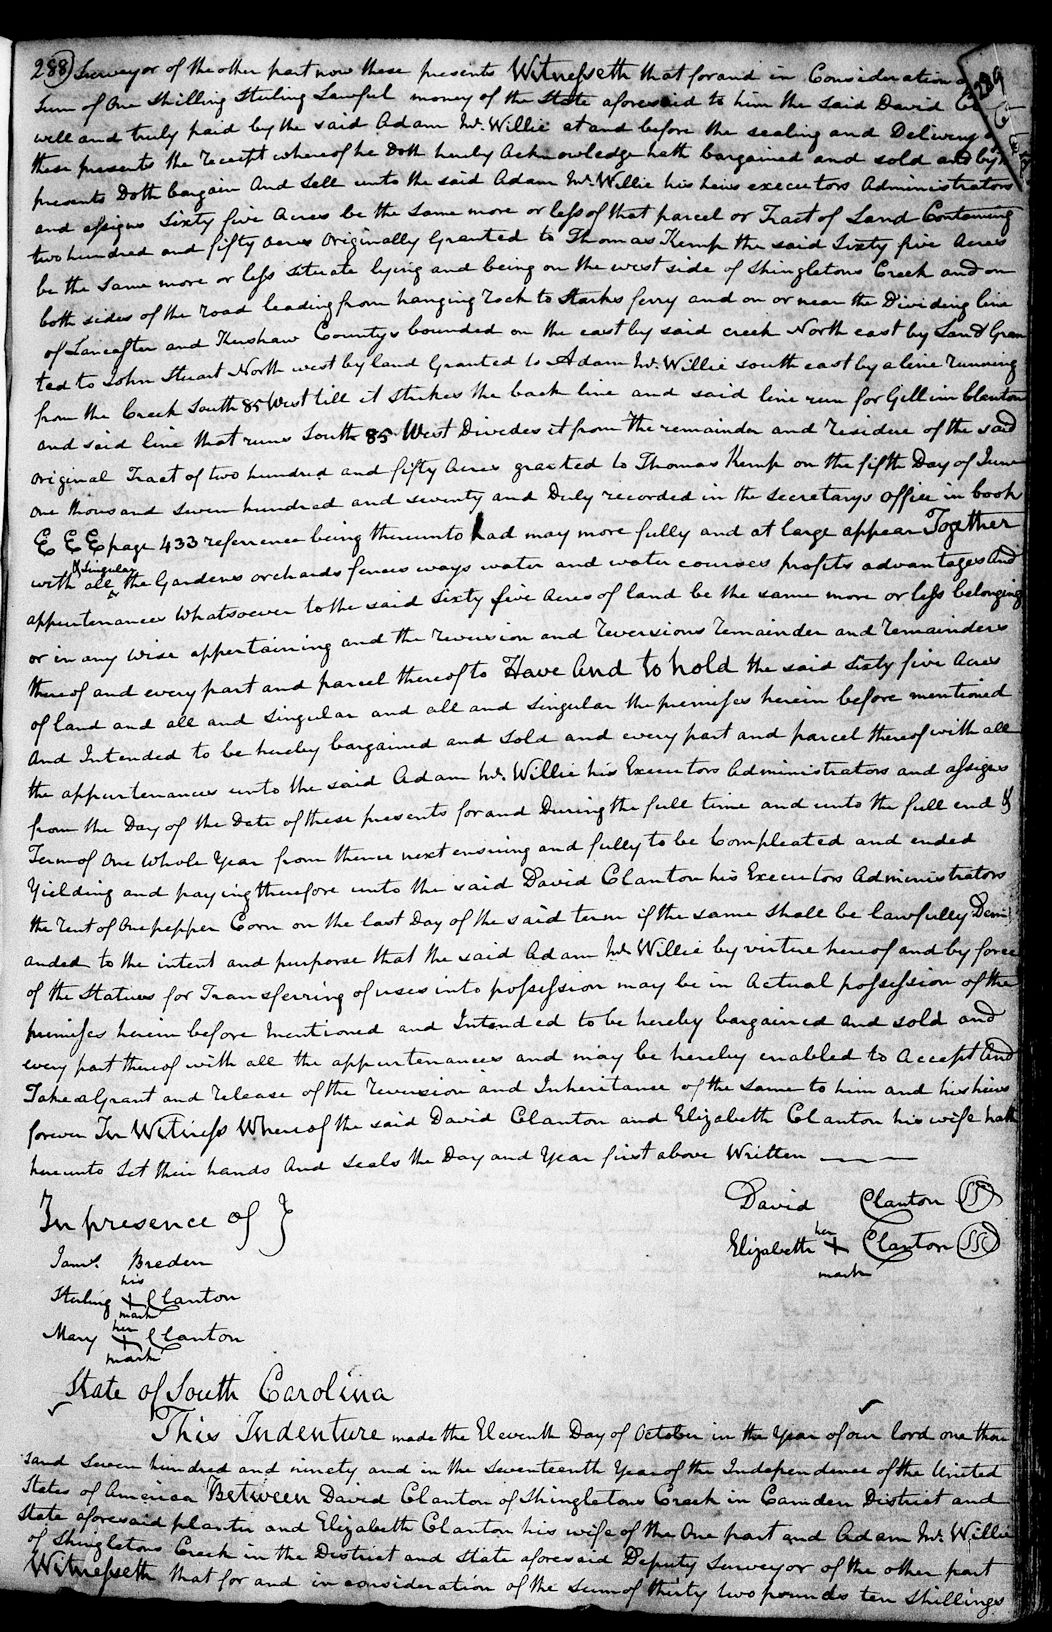 288) Surveyor of the other part now these presents Witnesseth that for and in Consideration
Sum of One Shilling Sterling Lawful money of the State aforesaid to him the said David
well and truly paid by the said Adam Mc.Willie at and before the sealing and Delivery
these presents the receipt whereof he Doth hereby Acknowledge hath bargained and sold and by
presents Doth bargain And Sell unto the said Adam Mc.Willie his heirs executors Administrators
and assigns Sixty five Acres be the Same more or less of that parcel or Tract of Land Containing
two hundred and fifty acres Originally Granted to Thomas Kemp the said Sixty five Acres
be the Same more or less situate lying and being on the west side of Shingletons Creek and on
both sides of the road leading from hanging rock to Starks ferry and on or near the Dividing line
of Lancaster and Kershaw Countys bounded on the east by said creek North east by Land Gran
ted to John Stuart North west by land Granted to Adam Mc.Willie south east by a line running
from the Creek South 85 West till it strikes the back line and said line run for Gillim Clanton
and said line that runs South 85 West Divides it from the remainder and residue of the said
original Tract of two hundred and fifty Acres granted to Thomas Kemp on the fifth Day of June
One thousand seven hundred and seventy and Duly recorded in the secretarys office in book
E E E page 433 reference being thereunto had may more fully and at large appear Together
with all & Singular the Gardens orchards fences ways water and water courses profits advantages And
appurtenances Whatsoever to the said Sixty five Acres of land be the same more or less belonging
or in any wise appertaining and the reversion and reversions remainder and remainders
thereof and every part and parcel thereof to Have And to hold the said Sixty five Acres
of land and all and Singular and all and Singular the premises herein before mentioned
And Intended to be hereby bargained and Sold and every part and parcel thereof with all
the appurtenances unto the said Adam Mc.Willie his Executors Administrators and assigns
from the Day of the Date of these presents for and During the full time and unto the full end &
Term of One Whole Year from thence next ensuing and fully to be Compleated and ended
Yielding and paying therefore unto the said David Clanton his Executors Administrators
the rent of One pepper Corn on the last Day of the said term if the same Shall be lawfully Dem
anded to the intent and purporse that the said Adam Mc.Willie by virtue hereof and by force
of the Statues for Transferring of uses into possession may be in Actual possession of the
premises herein before Mentioned and Intended to be hereby bargained and sold and
every part thereof with all the appurtenances and may be hereby enabled to Accept And
Take a Grant and release of the reversion and Inheritance of the same to him and his heirs
forever In Witness Whereof the said David Clanton and Elizabeth Clanton his wife hath
hereunto Set their hands And Seals the Day and Year first above Written
David Clanton
In presence of }
Elizabeth her + mark Clanton
Jams. Breden
Sterling his + mark Clanton
Mary her + mark Clanton
State of South Carolina
This Indenture made the Eleventh Day of October in the Year of our lord one thou
sand seven hundred and ninety and in the Seventeenth Year of the Independence of the United
States of America Between David Clanton of Shingletons Creek in Camden District and
State aforesaid planter and Elizabeth Clanton his wife of the One part and Adam Mc.Willie
of Shingletons Creek in the District and State aforesaid Deputy Surveyor of the other part
Witnesseth that for and in consideration of the Sum of thirty two pounds ten Shillings